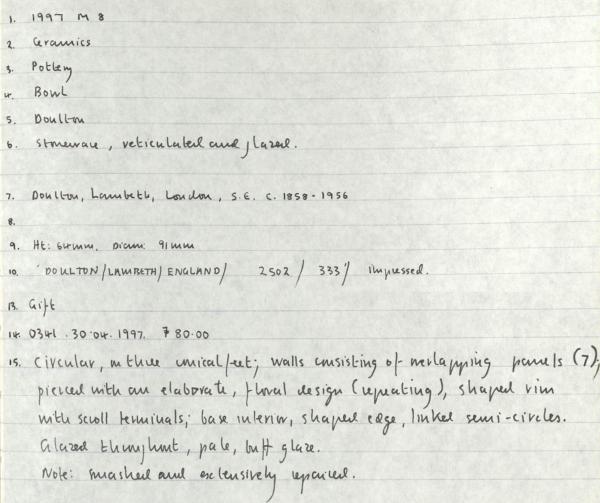 1. 1997 M 8
2. Ceramics
3. Pottery
4. Bowl
5. Doulton
6. Stoneware, reticulated and glazed.
7. Doulton, Lambeth, London, S.E. c. 1858-1956
8.
9. Ht: 64mm. Diam: 91mm
10. 'DOULTON/LAMBETH/ENGLAND/ 2502 / 333' Impressed.
13. Gift
14. 0341 .30.04.1997. 80.00
15. Circular, on three conical feet; walls consisting of overlapping panels (7),
pierced with an elaborate, floral design (repeating), shaped rim
with scroll terminals; base interior, shaped edge, linked semi-circles.
Glazed throughout, pale, buff glaze.
Note: smashed and extensively repaired.